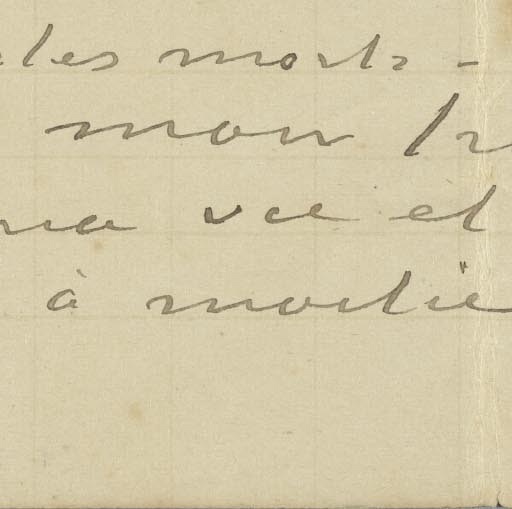 les morts -
mon tr
ma vie et
à moitié